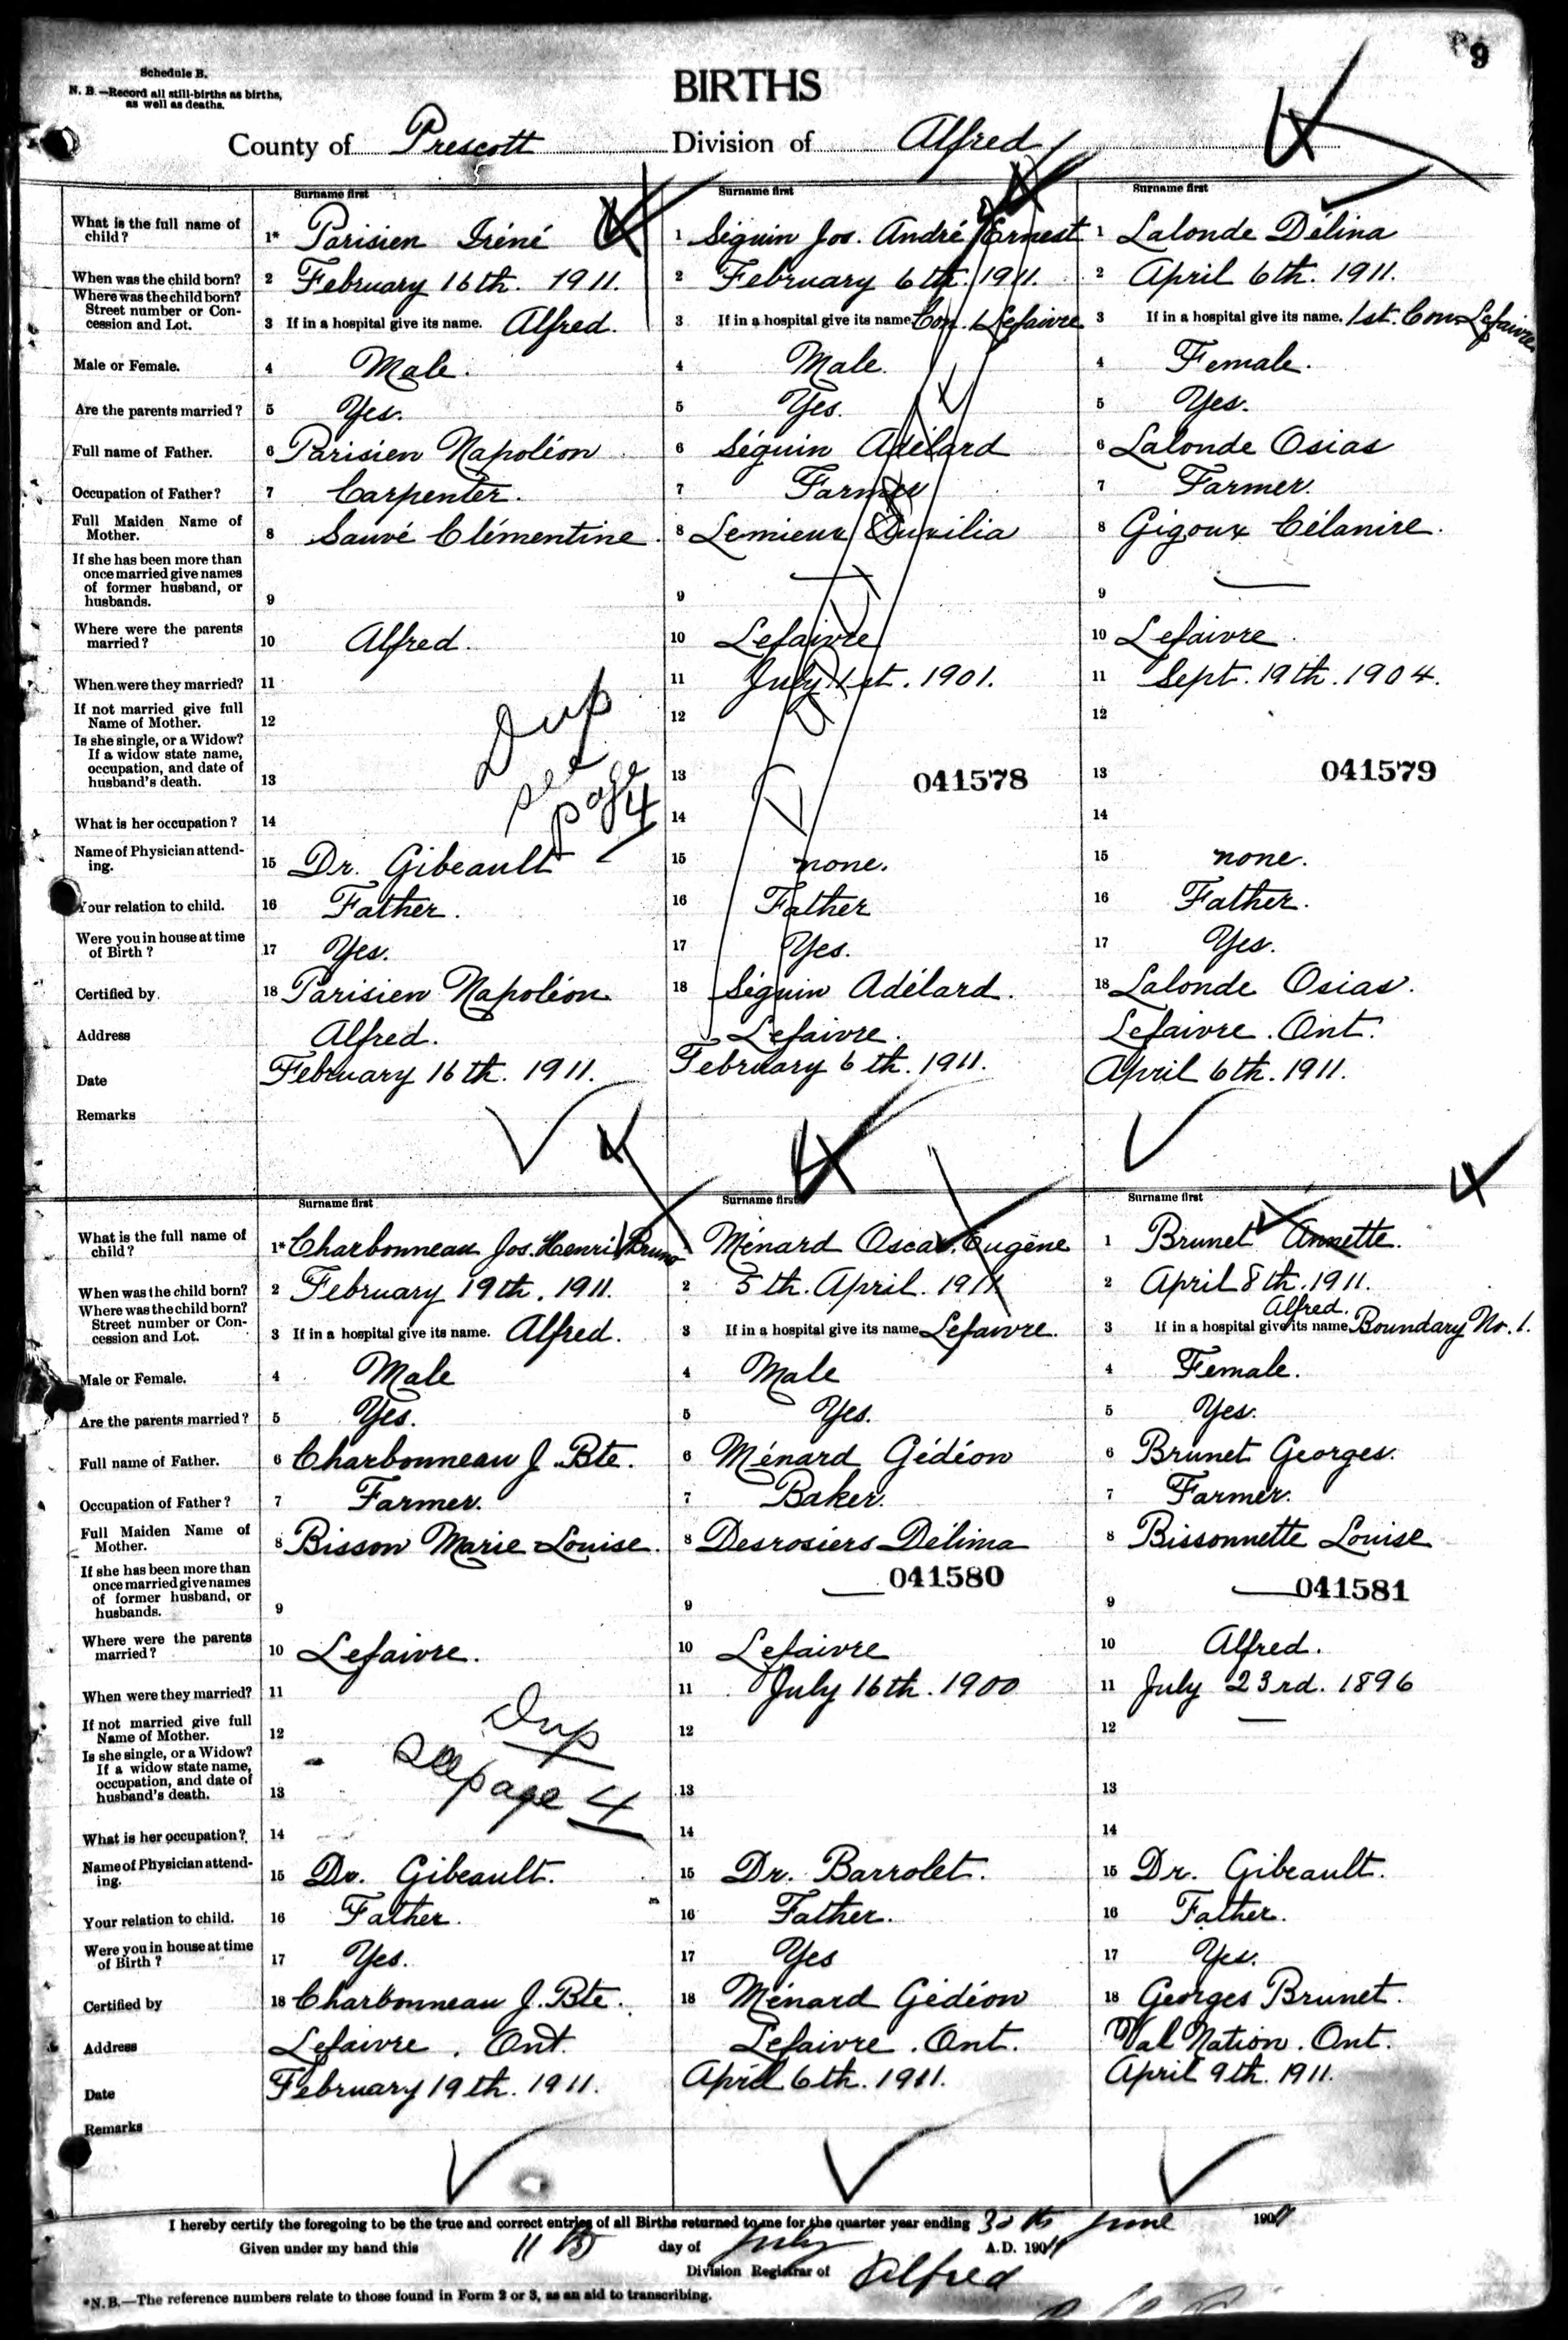 9
Schedule B.
N. B.—Record all still-births as births,
as well as deaths.
BIRTHS
County of Prescott Division of Alfred
Surname first Surname first Surname first
What is the full name of
child? 1* Parisien Iréné 1 Séguin Jos. André Ernest 1 Lalonde Délina
When was the child born? 2 February 16th. 1911. 2 February 6th. 1911. 2 April 6th. 1911.
Where was the child born?
Street number or Con-
cession and Lot. 3 If in a hospital give its name. Alfred. 3 If in a hospital give its name Con. 1 Lefaivre 3 If in a hospital give its name. 1st. Con. Lefaivre
Male or Female. 4 Male. 4 Male. 4 Female.
Are the parents married? 5 Yes. 5 Yes. 5 Yes.
Full name of Father. 6 Parisien Napoléon 6 Séguin Adélard 6 Lalonde Osias
Occupation of Father? 7 Carpenter. 7 Farmer 7 Farmer.
Full Maiden Name of
Mother. 8 Sauvé Clémentine. 8 Lemieux Auxilia 8 Gigoux Célanire.
If she has been more than
once married give names
of former husband, or
husbands. 9 9 — 9 —
Where were the parents
married? 10 Alfred. 10 Lefaivre 10 Lefaivre.
When were they married? 11 11 July 1st. 1901. 11 Sept. 19th. 1904.
If not married give full
Name of Mother. 12 Dup 12 12
Is she single, or a Widow?
If a widow state name,
occupation, and date of
husband's death. 13 see 13 041578 13 041579
What is her occupation? 14 page 4 14 14
Name of Physician attend-
ing. 15 Dr. Gibeault 15 none. 15 none.
Your relation to child. 16 Father. 16 Father 16 Father.
Were you in house at time
of Birth? 17 Yes. 17 Yes. 17 Yes.
Certified by. 18 Parisien Napoléon 18 Séguin Adélard. 18 Lalonde Osias.
Address Alfred. Lefaivre. Lefaivre. Ont.
Date February 16th. 1911. February 6th. 1911. April 6th. 1911.
Remarks
Surname first Surname first Surname first
What is the full name of
child? 1* Charbonneau Jos. Henri Bruno Ménard Oscar Eugène 1 Brunet Annette.
When was the child born? 2 February 19th. 1911. 2 5th. April. 1911 2 April 8th. 1911.
Where was the child born?
Street number or Con-
cession and Lot. 3 If in a hospital give its name. Alfred. 3 If in a hospital give its name Lefaivre. 3 If in a hospital give its name Alfred. Boundary No. 1.
Male or Female. 4 Male 4 Male 4 Female.
Are the parents married? 5 Yes. 5 Yes. 5 Yes.
Full name of Father. 6 Charbonneau J. Bte. 6 Ménard Gédéon 6 Brunet Georges.
Occupation of Father? 7 Farmer. 7 Baker. 7 Farmer.
Full Maiden Name of
Mother. 8 Bisson Marie Louise. 8 Desrosiers Délima 8 Bissonnette Louise
If she has been more than
once married give names
of former husband, or
husbands. 9 9 — 041580 9 — 041581
Where were the parents
married? 10 Lefaivre. 10 Lefaivre 10 Alfred.
When were they married? 11 11 July 16th. 1900 11 July 23rd. 1896
If not married give full
Name of Mother. 12 Dup 12 12 —
Is she single, or a Widow?
If a widow state name,
occupation, and date of
husband's death. 13 See page 4 13 13
What is her occupation? 14 14 14
Name of Physician attend-
ing. 15 Dr. Gibeault. 15 Dr. Barrolet. 15 Dr. Gibeault.
Your relation to child. 16 Father. 16 Father. 16 Father.
Were you in house at time
of Birth? 17 Yes. 17 Yes 17 Yes.
Certified by 18 Charbonneau J. Bte. 18 Ménard Gédéon 18 Georges Brunet.
Address Lefaivre. Ont. Lefaivre. Ont. Wal Nation. Ont.
Date February 19th. 1911. April 6th. 1911. April 9th. 1911.
Remarks
I hereby certify the foregoing to be the true and correct entries of all Births returned to me for the quarter year ending 30th June 1911
Given under my hand this 11th day of July A.D. 1911
Division Registrar of Alfred
*N.B.—The reference numbers relate to those found in Form 2 or 3, as an aid to transcribing.